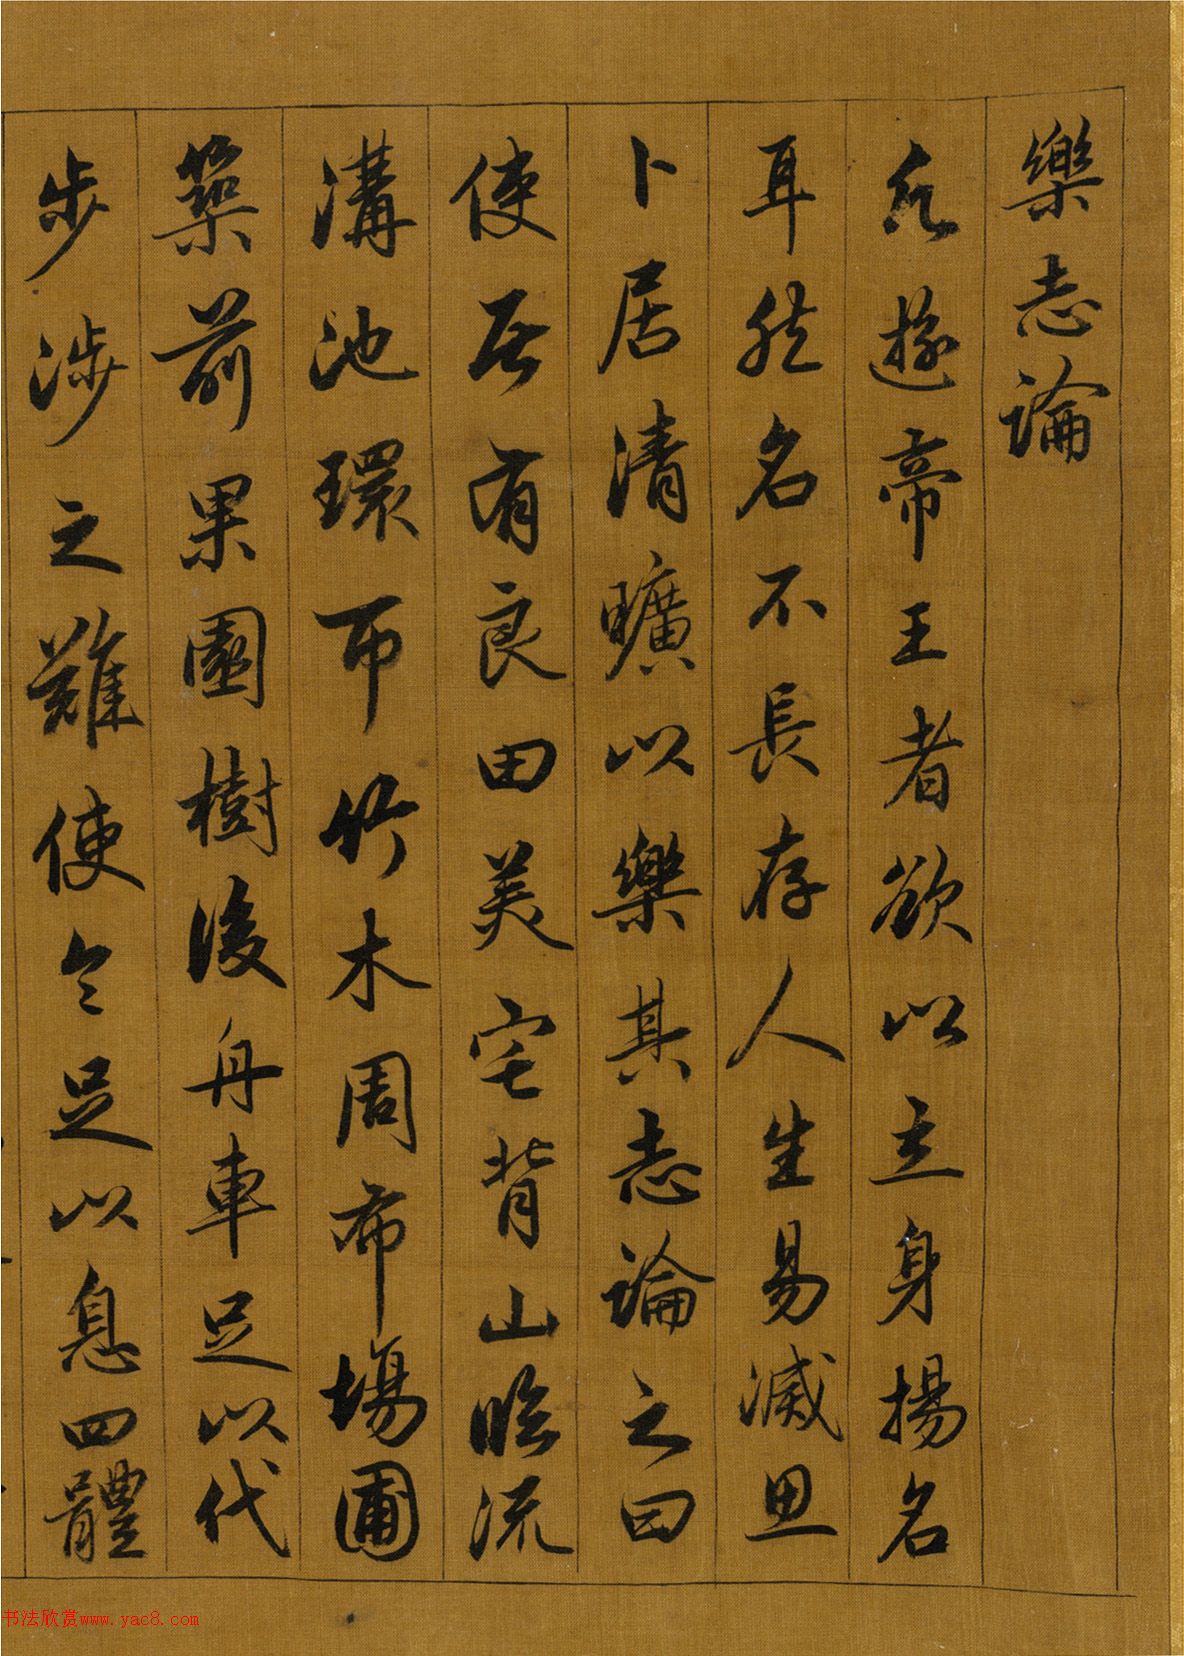 樂志論
凡遊帝王者欲以立身揚名
耳然名不長存人生易滅思
卜居清曠以樂其志論之曰
使居有良田美宅背山臨流
溝池環帀竹木周布場圃
築前果園樹後舟車足以代
步涉之難使令足以息四體
书法欣赏www.yac8.com